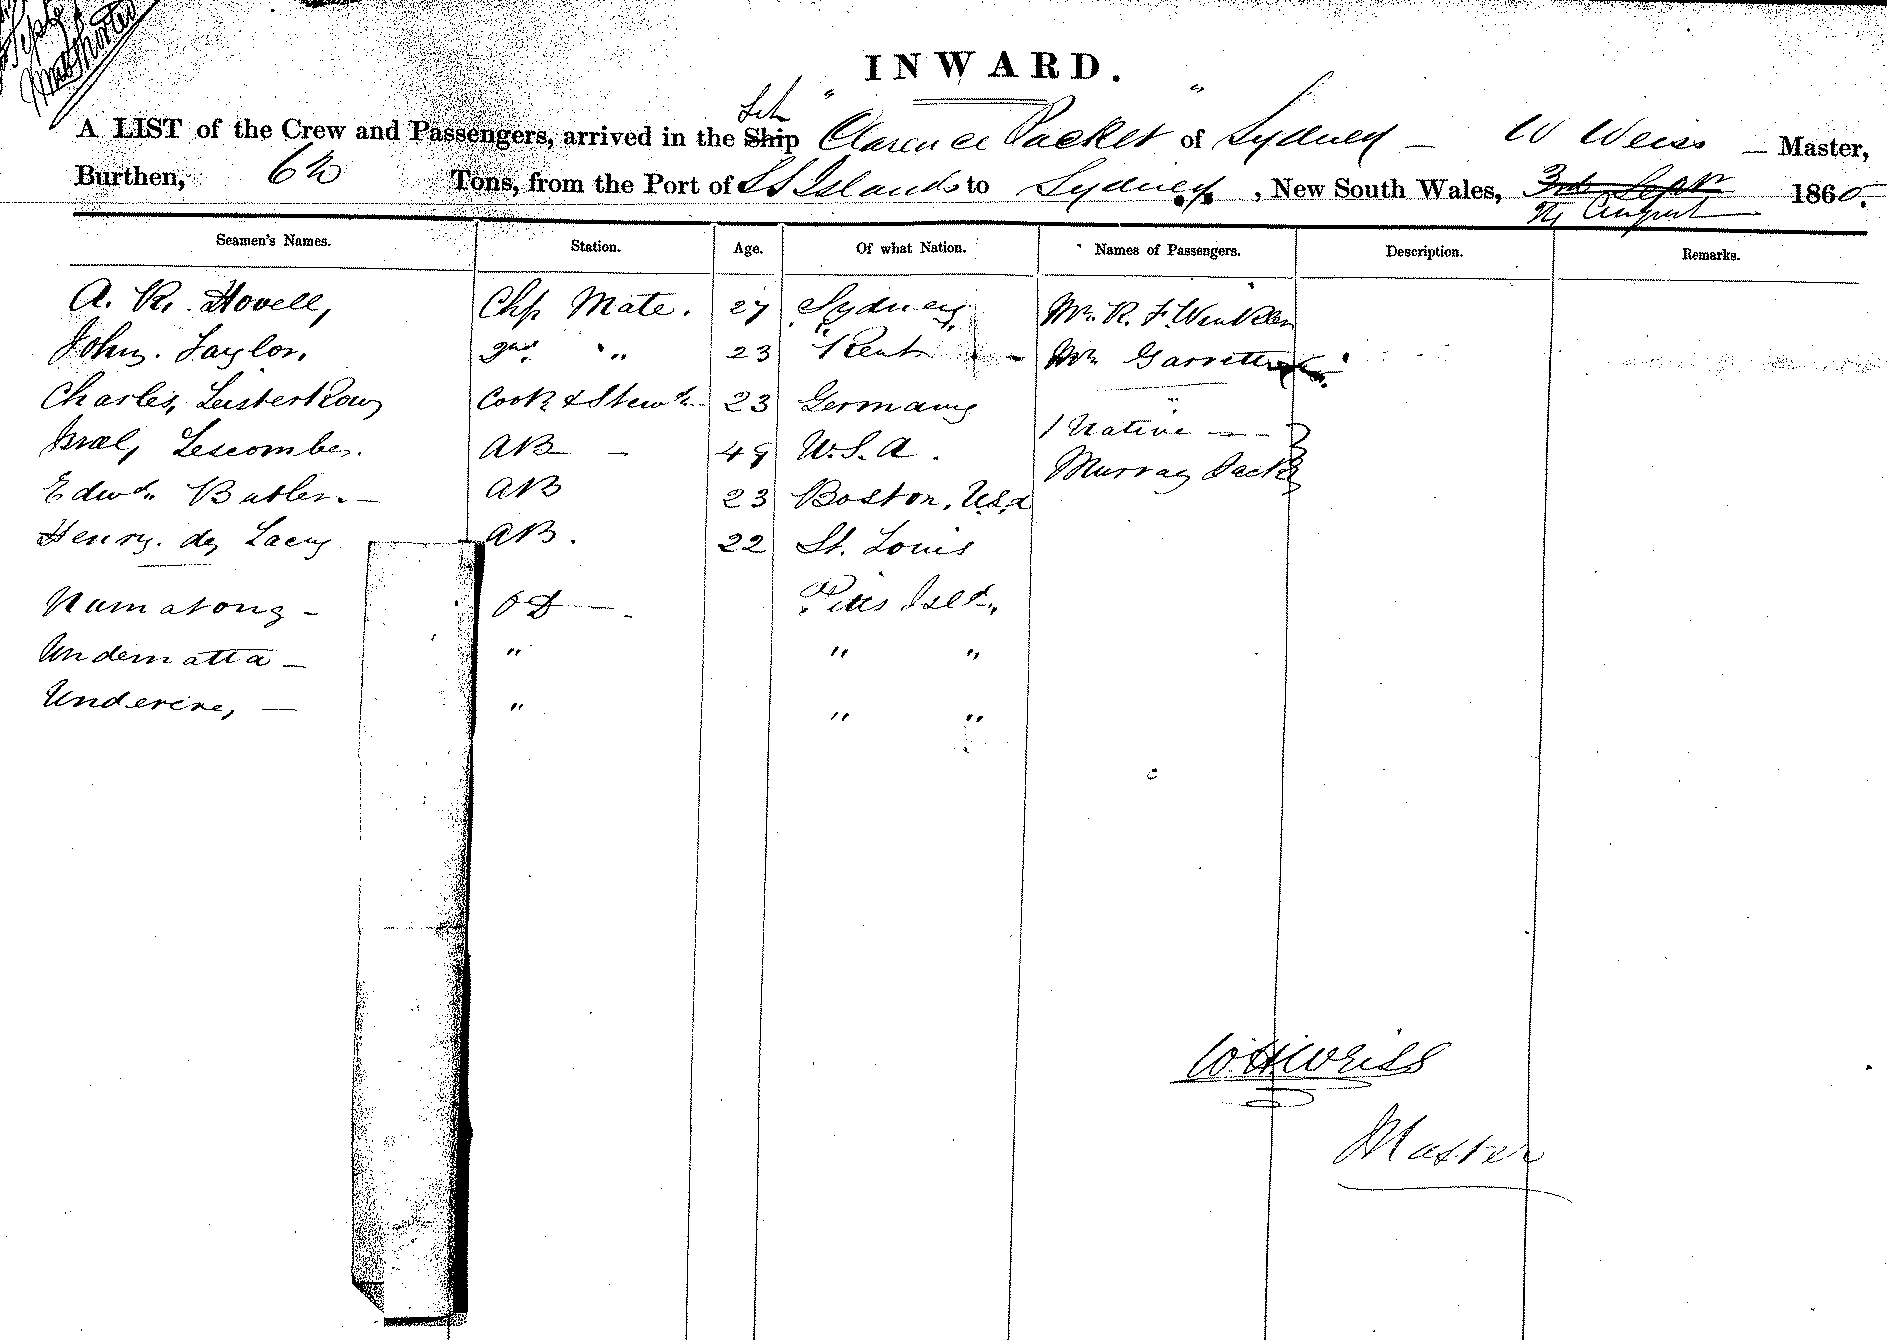 INWARD.
Sch
A LIST of the Crew and Passengers, arrived in the Ship "Clarence Packet" of Sydney - W Weiss - Master,
Burthen, Tons, from the Port of S S Islands to Sydney, New South Wales, 3rd Sepr 1865.
August
Seamen's Names. Station. Age. Of what Nation. Names of Passengers. Description. Remarks.
A. R. Hovell, Chf Mate. 27 Sydney Mr. R. F. Winkler
John. Taylor. 2nd " 23 Kent Mr Garrett
Charles, Cook & Stewd 23 Germany
Isral, Lescomber. AB - 49 U.S.A. 1 Native
Edwd. Butler. - AB 23 Boston, U.S.A Murray Jack
Henry. de Lacy AB. 22 St. Louis
Numatong - OD - Isld.
Undematta - " " "
Underere, - " " "
W.H. Weiss
Master